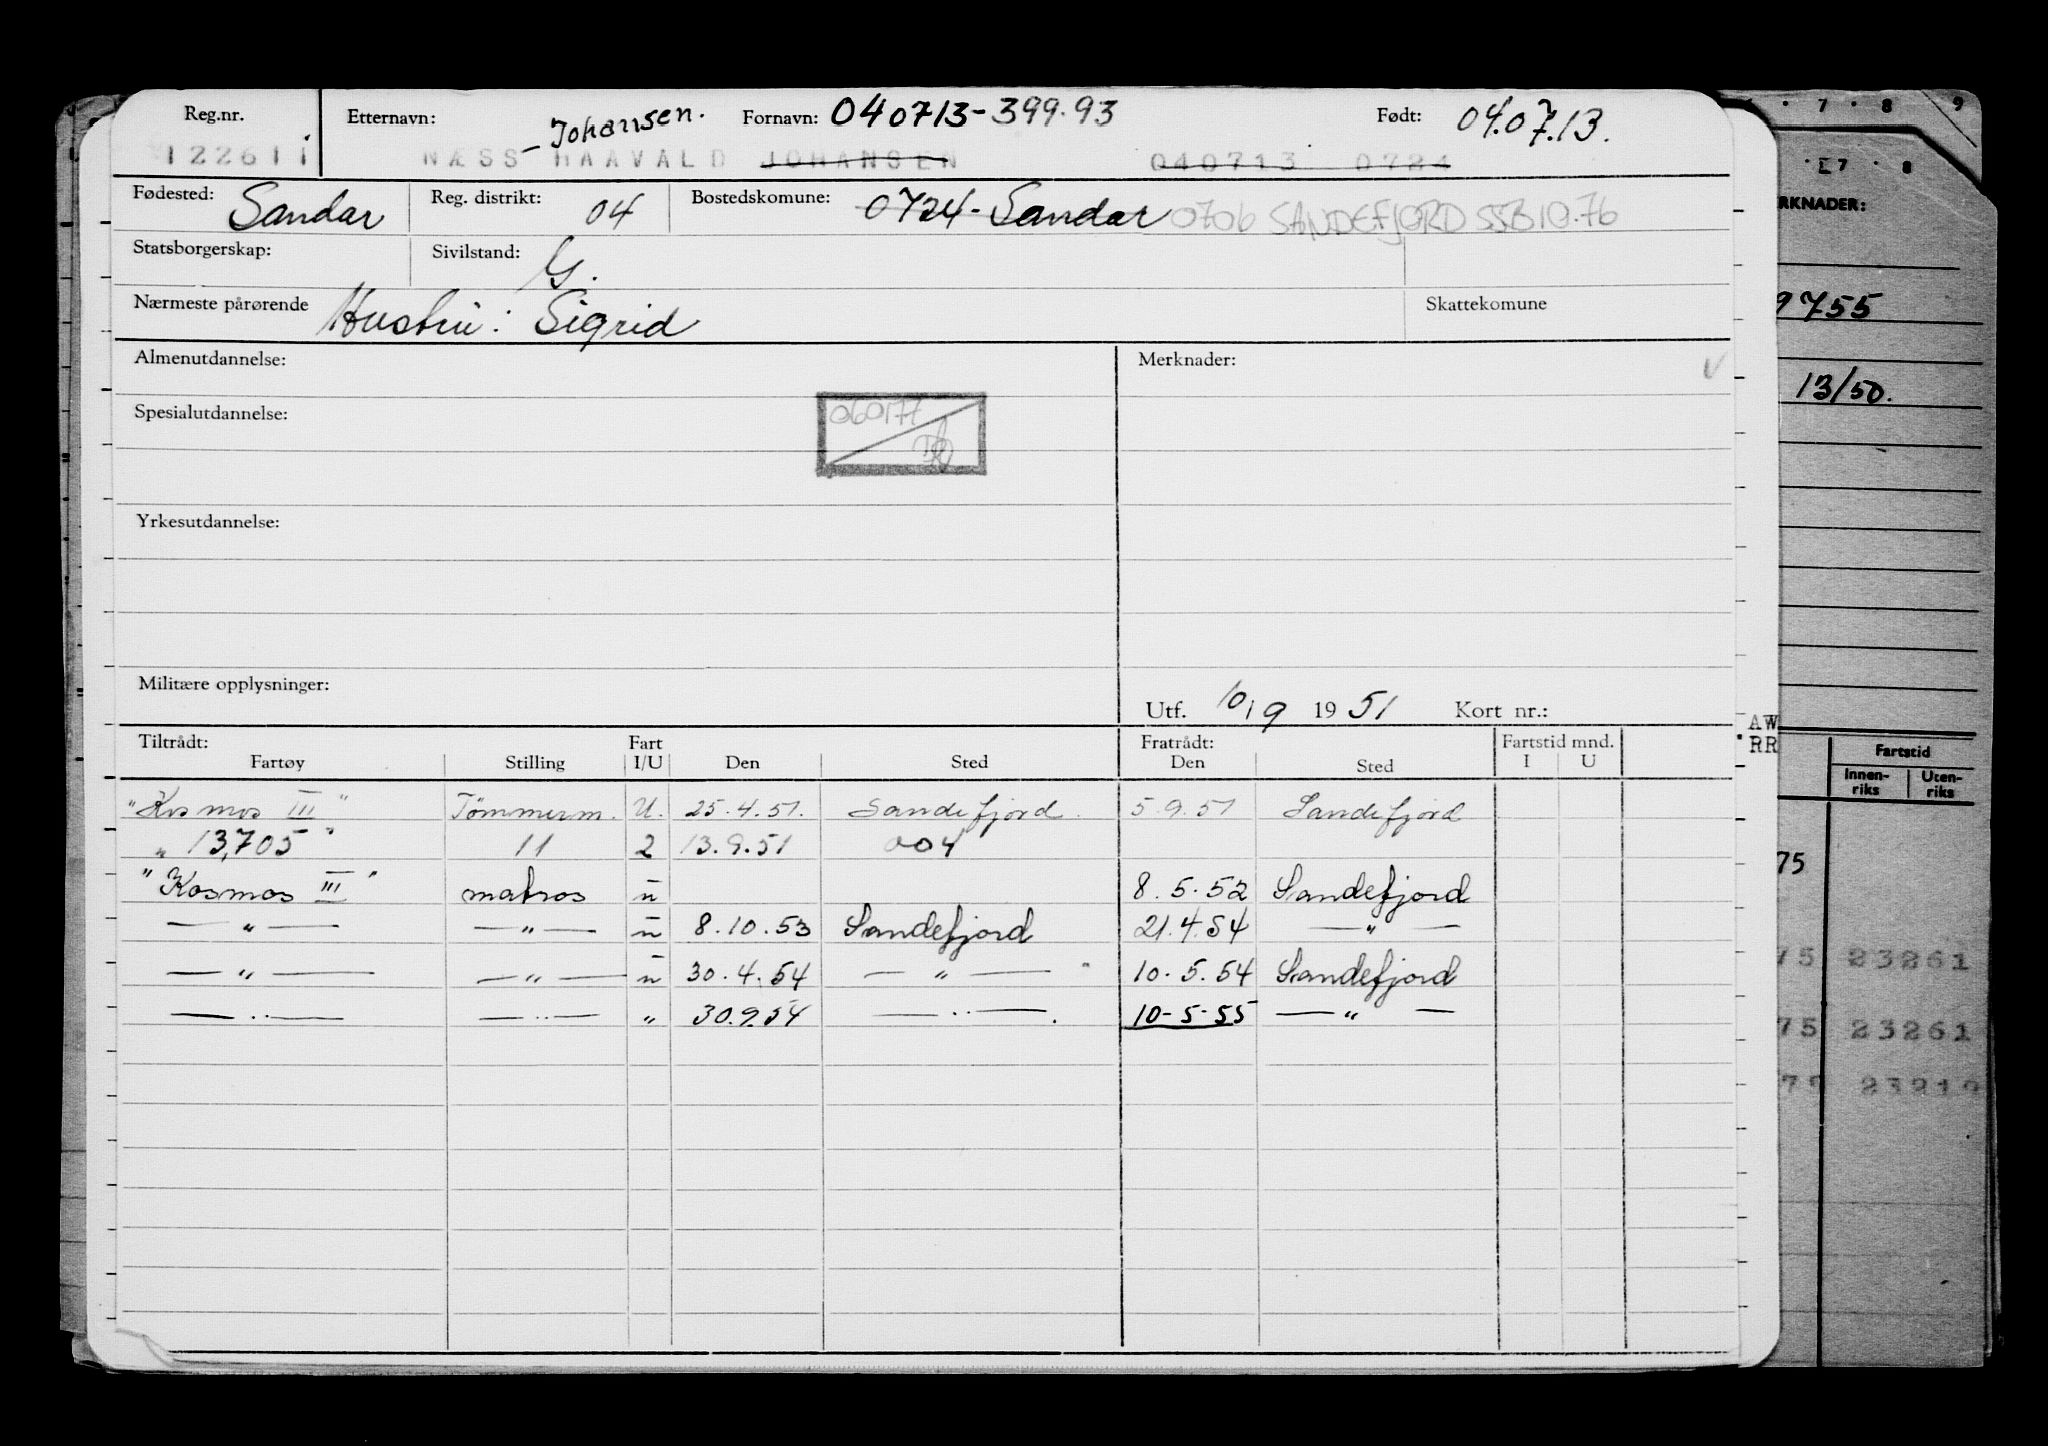 Reg.nr. Etternavn: - Johansen. Fornavn: 040713-399.93 Født: 04.07.13.
122611 NÆSS HAAVALD JOHANSEN 040713 0724
Fødested: Sandar Reg. distrikt: 04 Bostedskomune: 0724-Sandar 0706 SANDEFJORD SSB 10.76
Statsborgerskap: Sivilstand: G.
Nærmeste pårørende Hustru: Sigrid Skattekomune
Almenutdannelse: Merknader: V
Spesialutdannelse: 060177
Yrkesutdannelse:
Militære opplysninger:
Utf. 10/9 1951 Kort nr.:
Tiltrådt: Fart Fratrådt: Fartstid mnd.
Fartøy Stilling I/U Den Sted Den Sted I U
"Kosmos III" Tømmerm. U. 25.4.51. Sandefjord. 5.9.51 Sandefjord
„ 13,705 " 11 2 13.9.51 004
"Kosmos III" matros u 8.5.52 Sandefjord
— " — — " — u 8.10.53 Sandefjord 21.4.54 — " —
— " — — " — u 30.4.54 — " — 10.5.54 Sandefjord
— " — — " — " 30.9.54 — " —. 10-5-55 — " —
7 8 9
E7 8
RKNADER:
9755
13/50.
AW
RR
Fartstid
Innen-
riks
Uten-
riks
75
75 23261
75 23261
79 23219